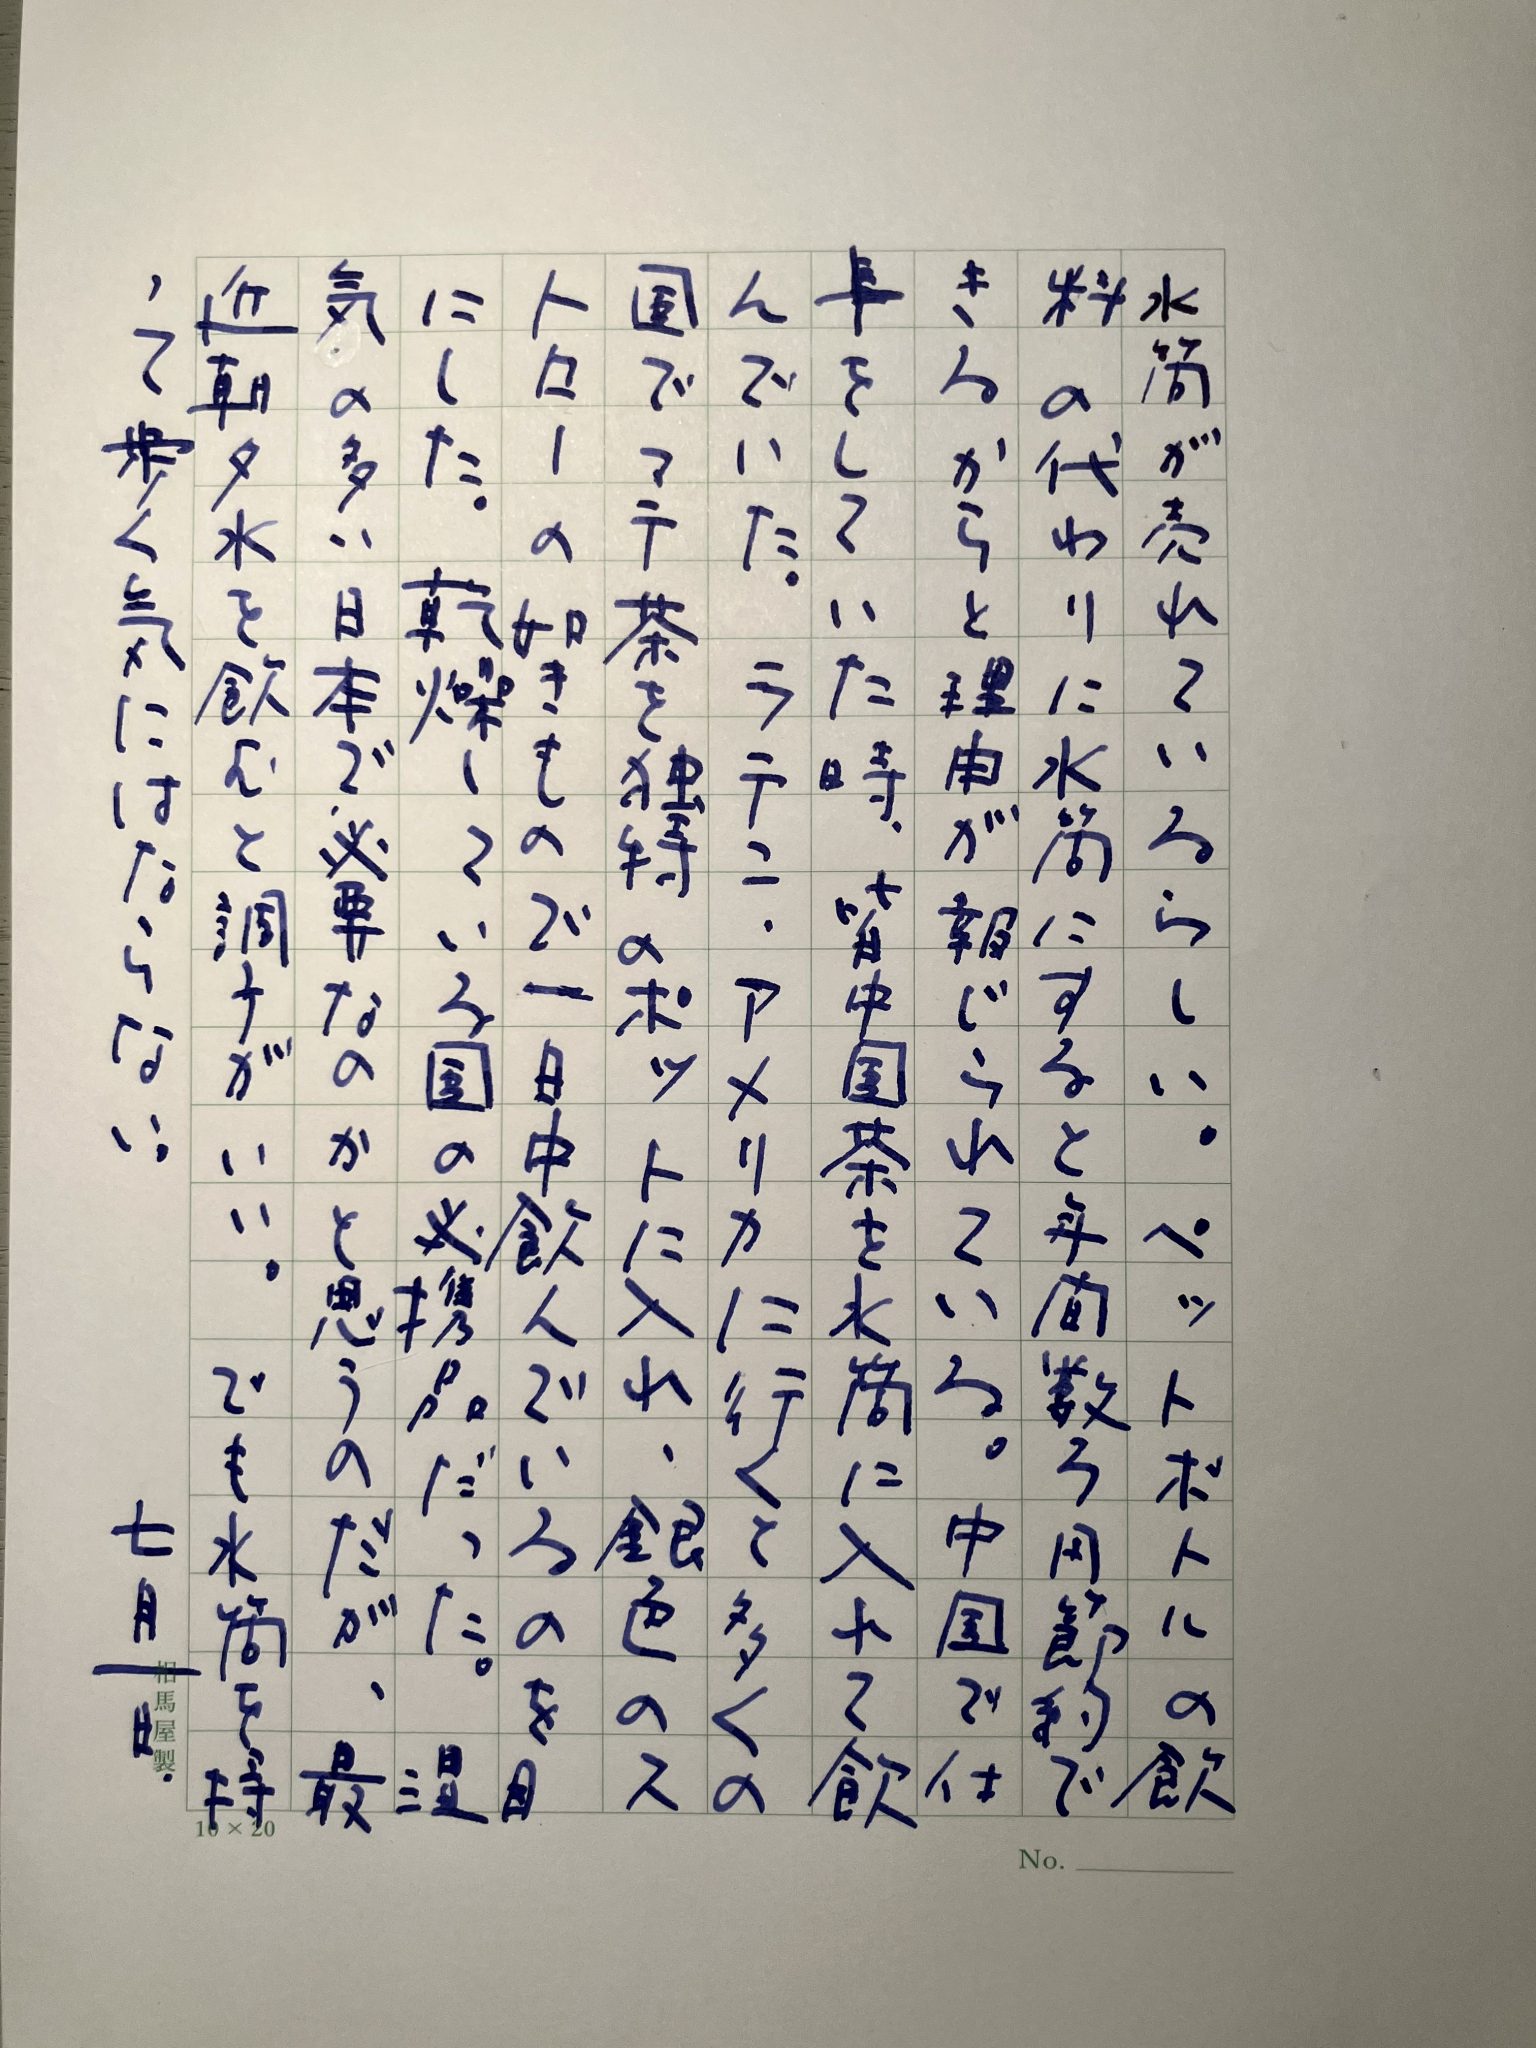 水筒が売れているらしい。ペットボトルの飲
料の代わりに水筒にすると年間数万円節約で
きるからと理由が報じられている。中国で仕
事をしていた時、皆中国茶を水筒に入れて飲
んでいた。ラテン・アメリカに行くと多くの
国でマテ茶を独特のポットに入れ、銀色のス
トローの如きもので一日中飲んでいるのを目
にした。乾燥している国の必携品だった。湿
気の多い日本で必要なのかと思うのだが、最
近朝夕水を飲むと調子がいい。でも水筒を持
って歩く気にはならない。
七月一日.
相馬屋製
10×20
No.